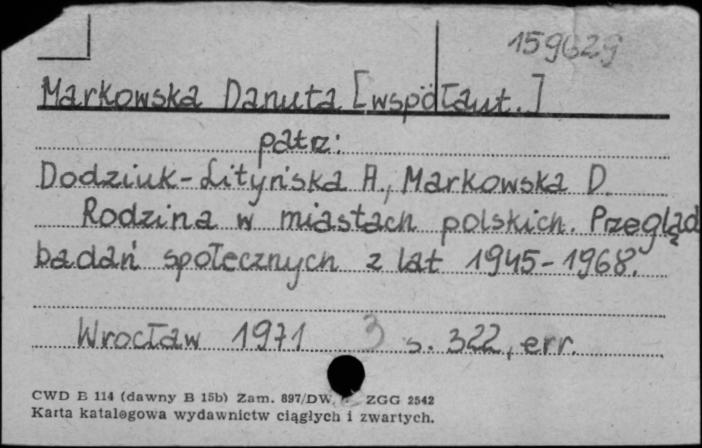 159629
Markowska Danuta [współaut.]
patrz:
Dodziuk-Lityńska A., Markowska D.
Rodzina w miastach polskich. Przegląd
badań społecznych z lat 1945-1968.
Wrocław 1971 3 s. 322, err.
CWD B 114 (dawny B 15b) Zam. 897/DW. ZGG 2542
Karta katalogowa wydawnictw ciągłych i zwartych.